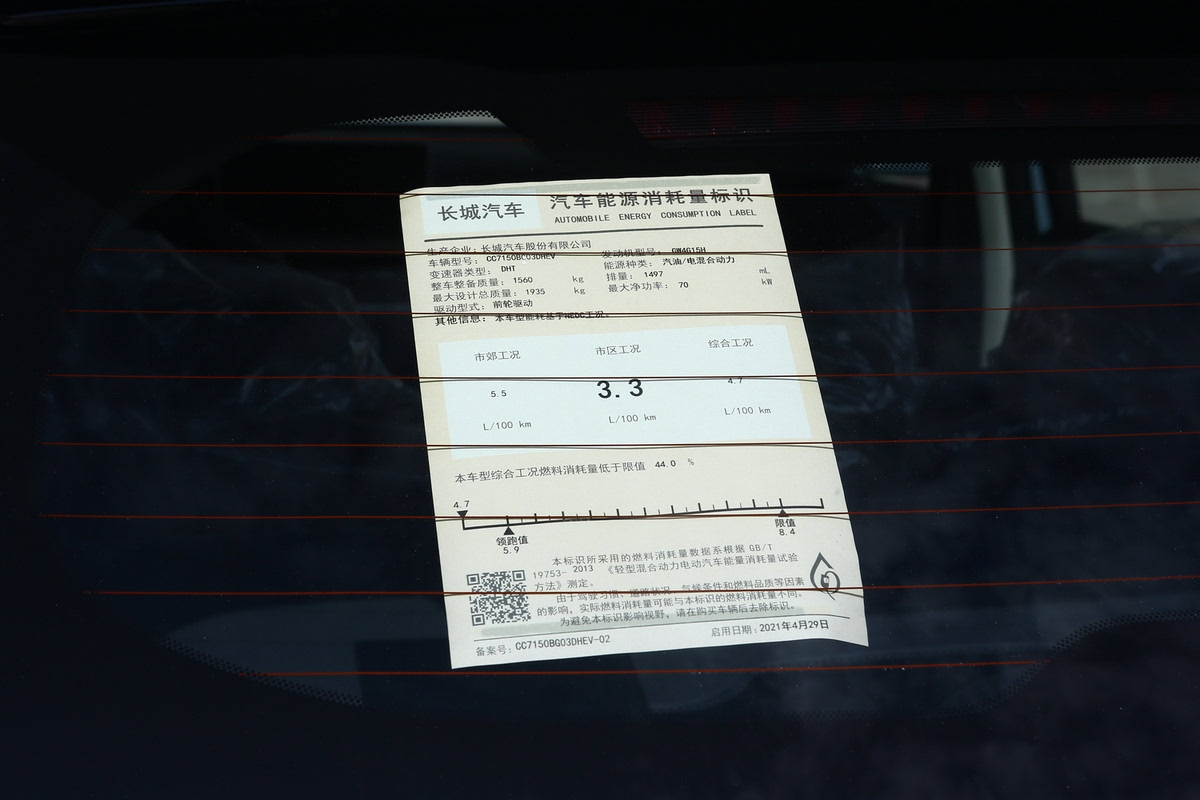 长城汽车
汽车能源消耗量标识
AUTOMOBILE ENERGY CONSUMPTION LABEL
生产企业：长城汽车股份有限公司
车辆型号：CC7150BG03DHEV 发动机型号：GW4G15H
变速器类型：DHT 能源种类：汽油/电混合动力
整车整备质量：1560 kg 排量：1497 mL
最大设计总质量：1935 kg 最大净功率：70 kW
驱动型式：前轮驱动
其他信息：本车型能耗基于NEDC工况。
市郊工况 市区工况 综合工况
5.5 3.3 4.7
L/100 km L/100 km L/100 km
本车型综合工况燃料消耗量低于限值 44.0 %
4.7
领跑值 限值
5.9 8.4
本标识所采用的燃料消耗量数据系根据 GB/T
19753- 2013 《轻型混合动力电动汽车能量消耗量试验
方法》测定。
由于驾驶习惯、道路状况、气候条件和燃料品质等因素
的影响，实际燃料消耗量可能与本标识的燃料消耗量不同。
为避免本标识影响视野，请在购买车辆后去除标识。
备案号：CC7150BG03DHEV-02 启用日期：2021年4月29日